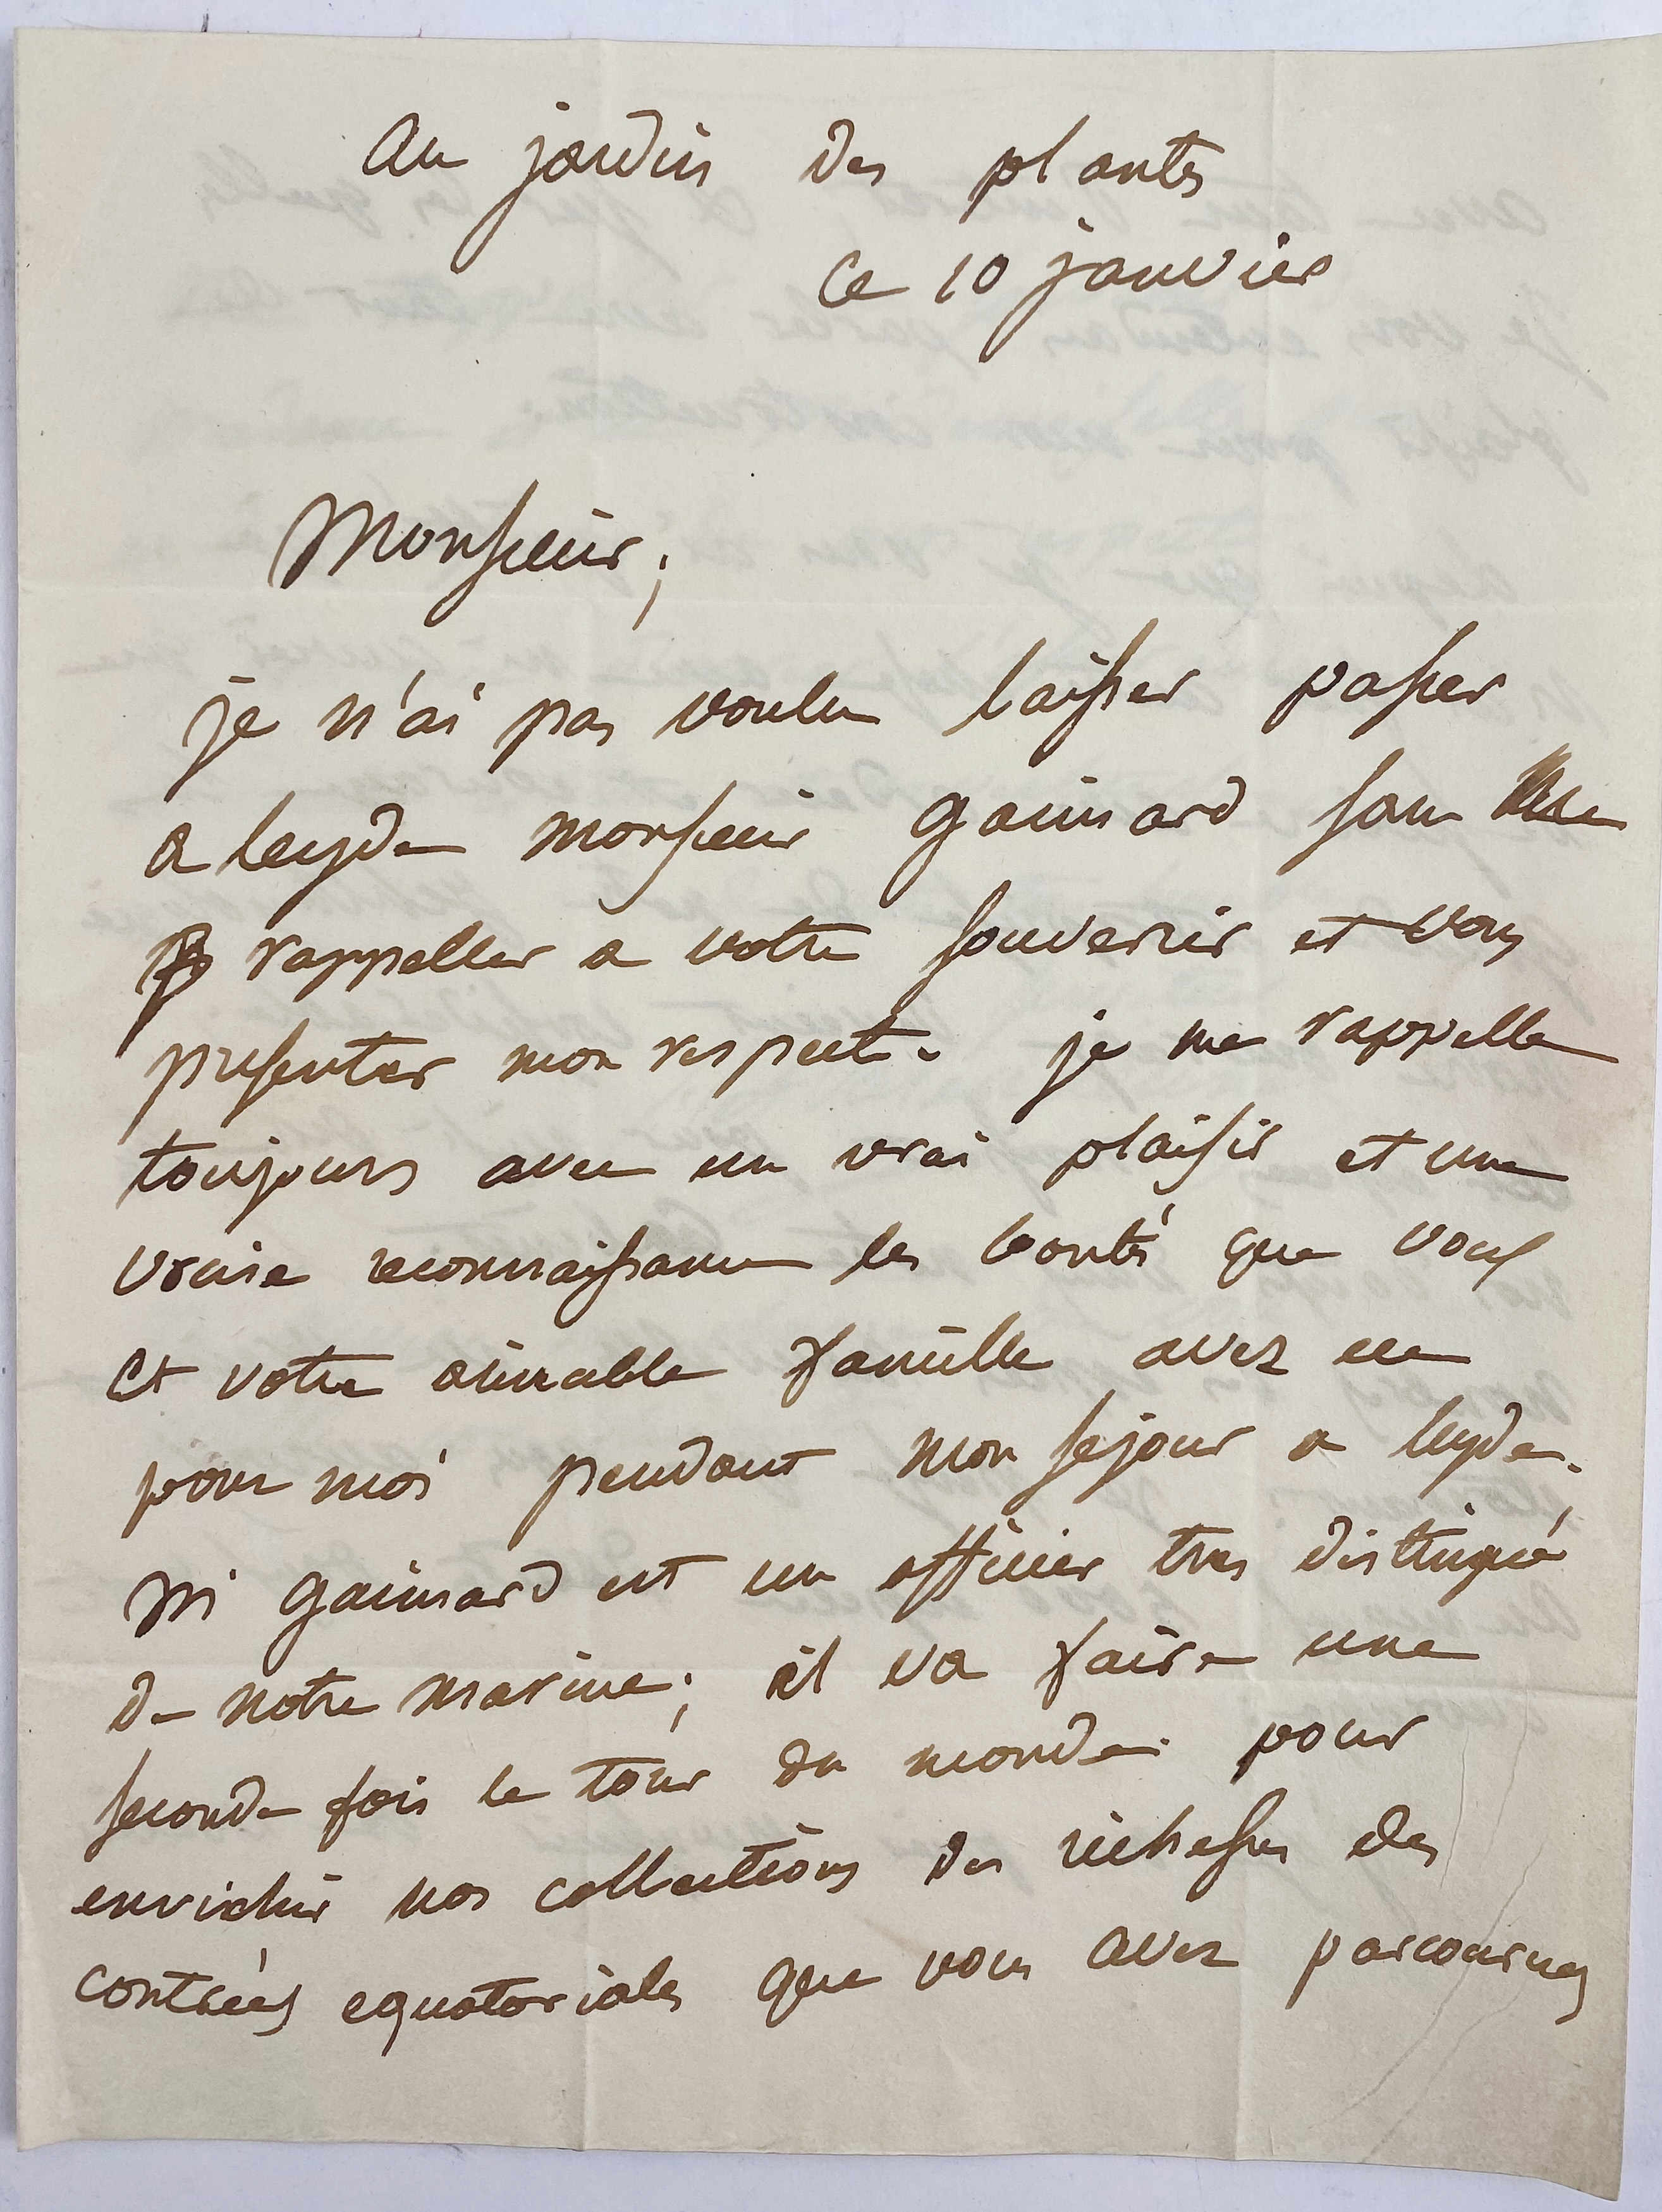 au jardin des plantes
ce 10 janvier
Monsieur;
je n'ai pas voulu laisser passer
a leyde monsieur gaimard sans
rappeller a votre souvenir et vous
presenter mon respect. je me rappelle
toujours avec un vrai plaisir et une
vraie reconnaissance les bontés que vous
et votre aimable famille avez eu
pour moi pendant mon sejour a leyde.
M gaimard est un officier tres distingué
de notre marine; il va faire une
seconde fois le tour du monde pour
enrichir nos collections des richesses des
contrées equatoriales que vous avez parcourues